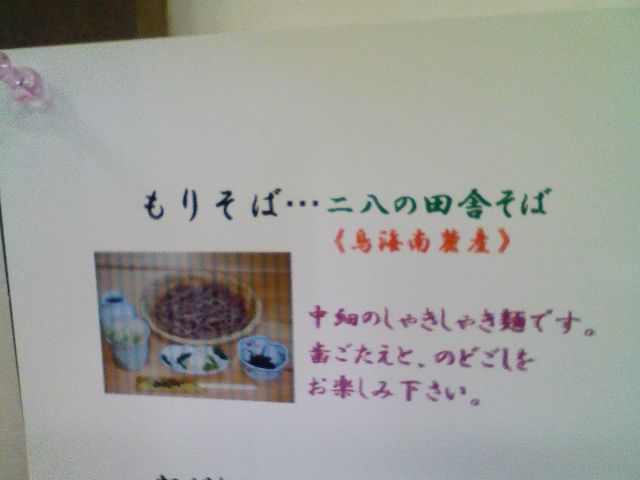 もりそば…二八の田舎そば
《鳥海南麓産》
中細のしゃきしゃき麺です。
歯ごたえと、のどごしを
お楽しみ下さい。